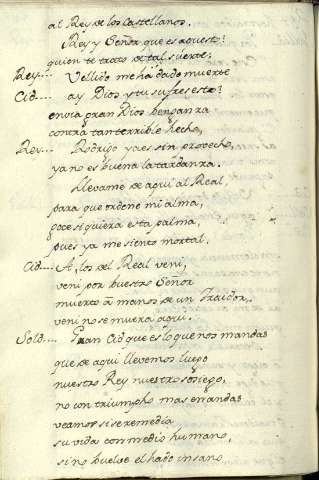 al Rey de los castellanos.
Rey y Señor que es aquesto?
quien te trato de tal suerte?
Rey.... Vellido me há dado muerte
Cid.... ay Dios y tu sufres esto?
envia gran Dios benganza
contra tan terrible hecho,
Rey.... Rodrigo ya es sin provecho,
ya no es buena la tardanza.
Llevame de aqui al Real,
para que ordene mi alma,
goce siquiera esta palma,
pues ya me siento mortal.
Cid.... A, los del Real veni,
veni por buestro Señor
muerto á manos de un Traidor,
veni no se muera aqui.
Sold.... Gran Cid que es lo que nos mandas
que de aqui llevemos luego
nuestro Rey nuestro sosiego,
no con triumpho mas en andas
veamos si se remedia
su vida con medio humano,
si no buelve el hado insano,